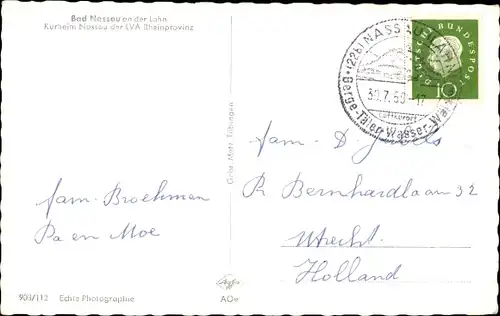 Bad Nassau an der Lahn
Kurheim Nassau der LVA Rheinprovinz
(22b) NASSAU (LAHN)
30.7.59-17
Luftkurort
Berge-Täler-Wasser-
DEUTSCHE BUNDESPOST
10
Gebr. Metz, Tübingen
fam. D.
Pr Bernhardlaan 32
Utrecht.
Holland
fam. Broekman
Pa en Moe
903/112 Echte Photographie
Agfa
AOe